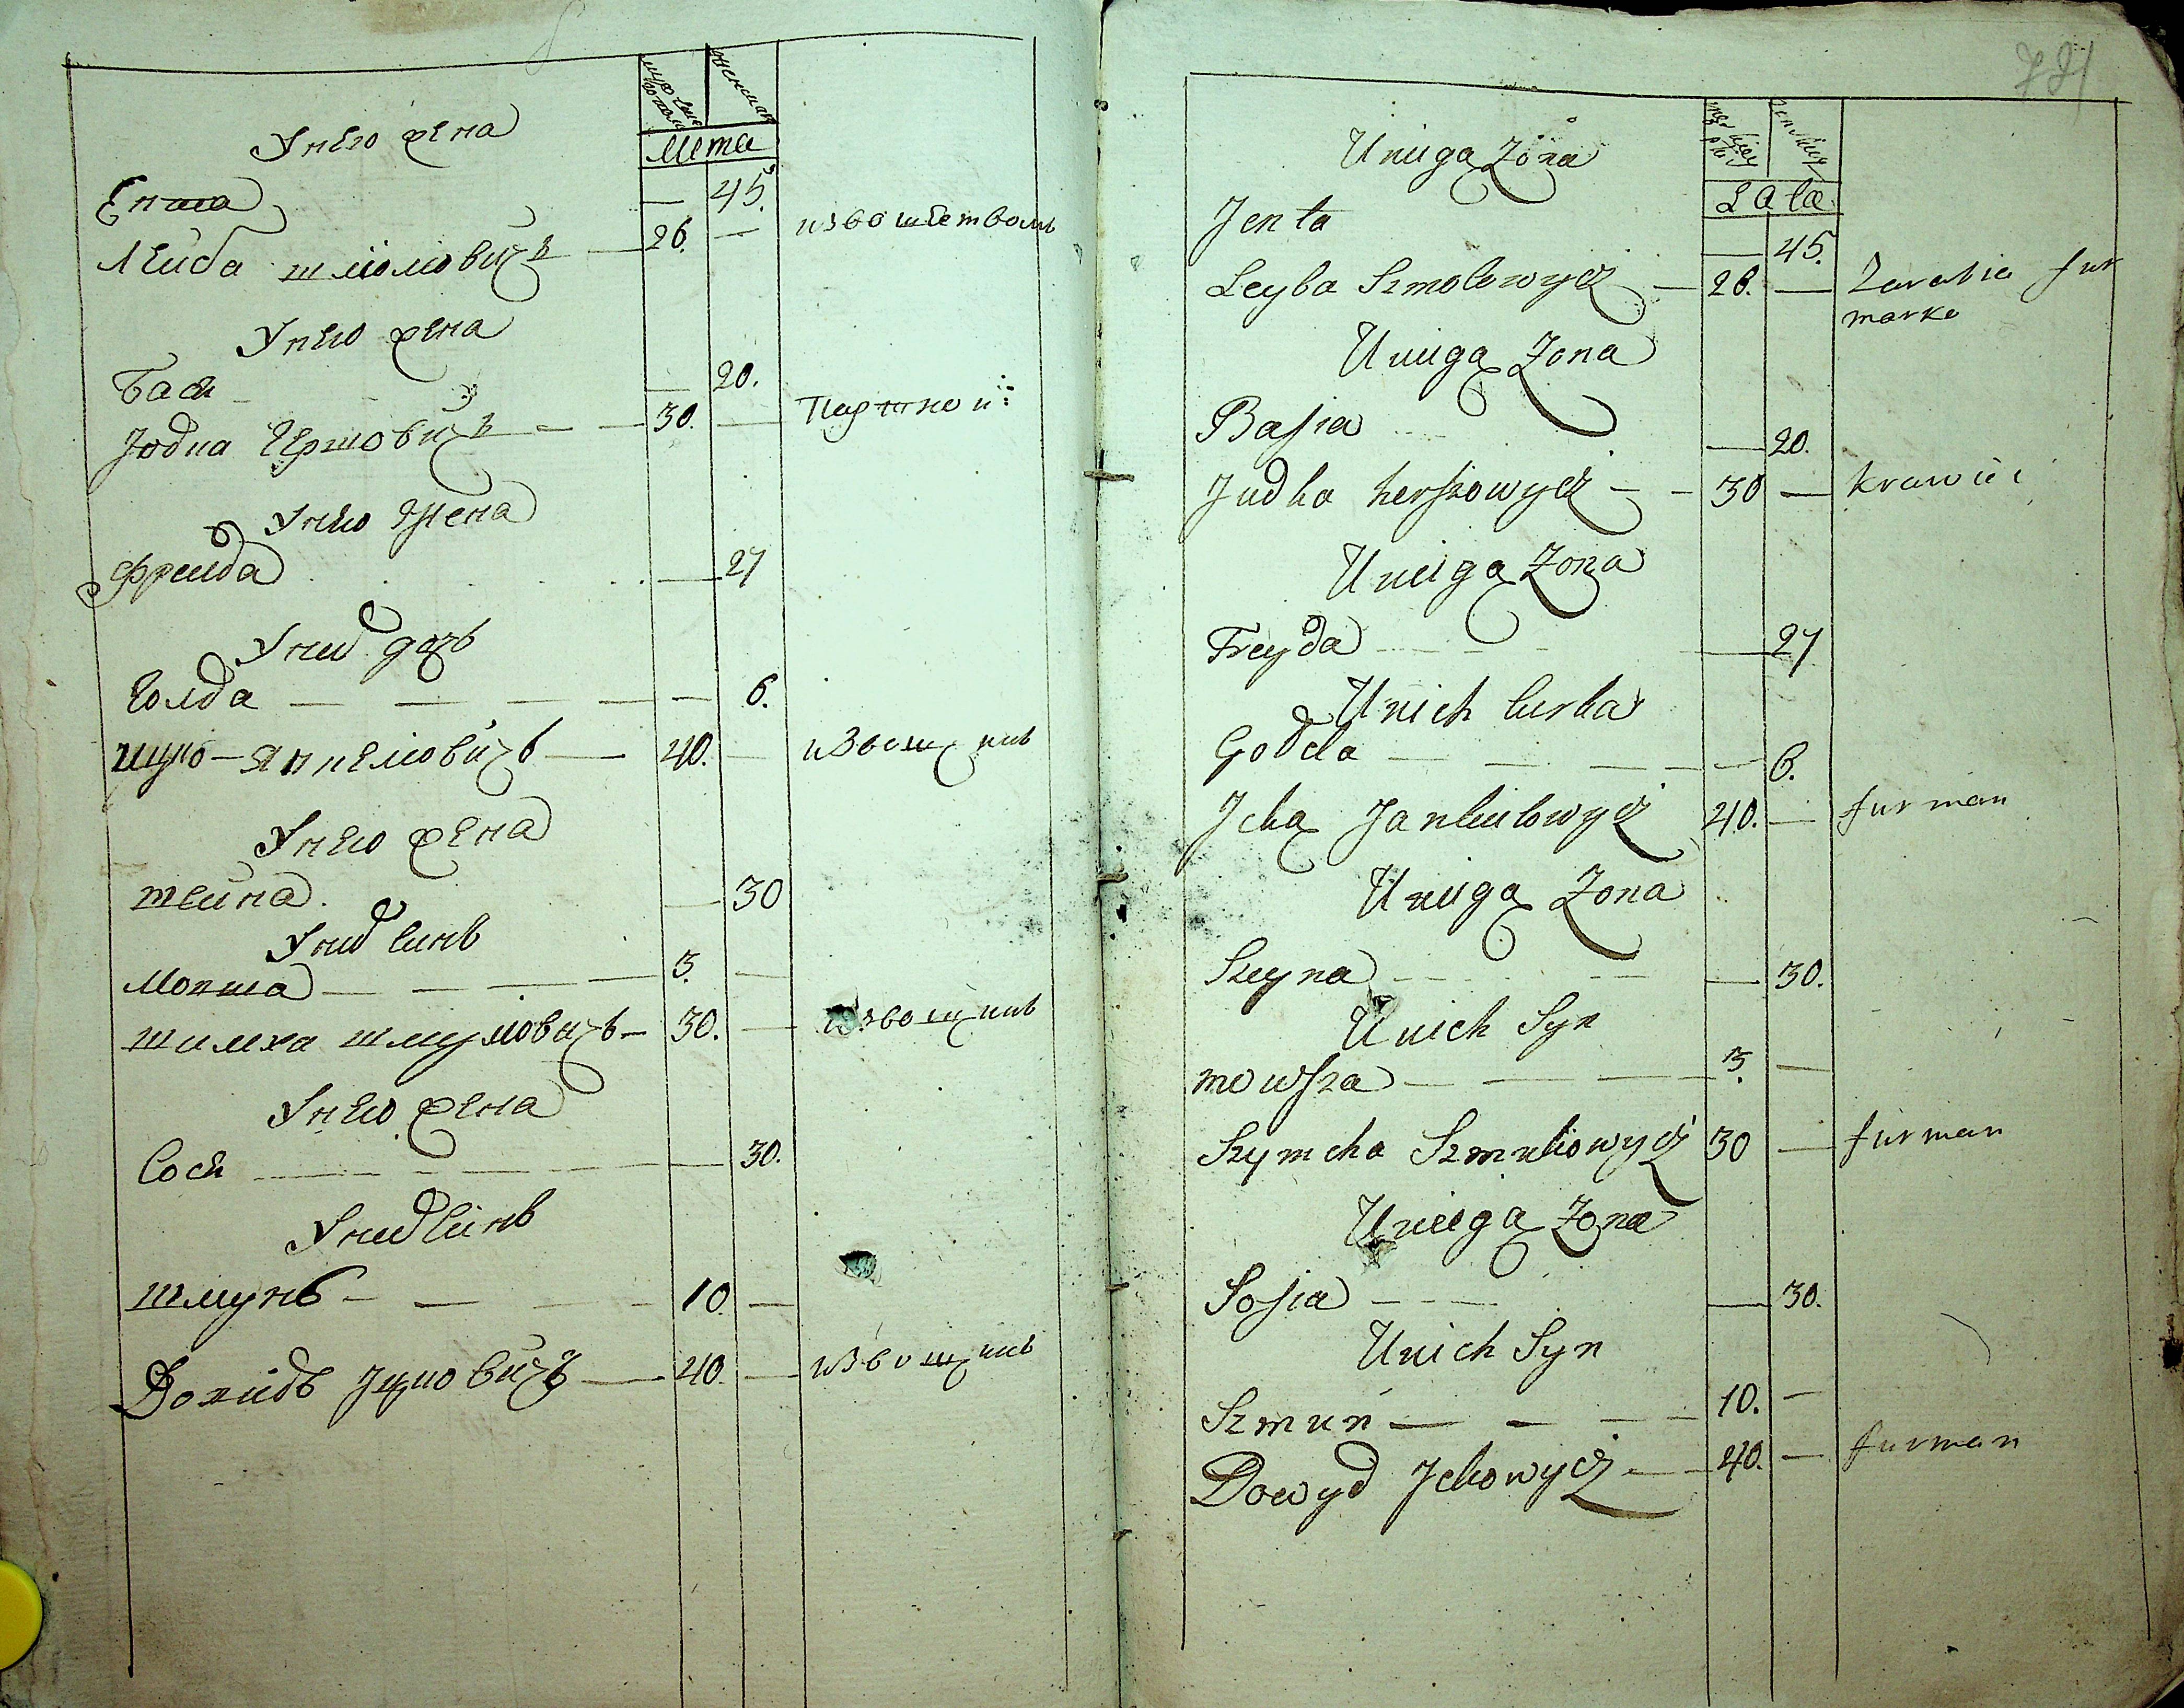 Унего жена
мужеска полу
женска
Лета
Ента — 45.
Лейба Шмолювичъ — 26. — извошеством
Унего жена
Бася — 20.
Јодка Гершовичъ — — 30. — Партной
Унего жена
Фрейда — 27
Уних дочь
Голда — — — — — 6.
Ицко Янкелювичь — 40. — извощикь
Унего жена
шейна — 30
Уних синь
Мовша — — — — 3. —
Шимха Шмулювичь — 30. — извощикь
Унего жена
Сося — — — — 30.
Уних синь
Шмунь — — — — 10. —
Довидь Јцковичь — 40. — извощикь
Uniego Zona
Lata
Jenta — 45.
Leyba Szmolowycz — 26. — Zarabia fur
manke
Uniega Zona
Basia — 20.
Judka herszowycz — — 30 — krawiec
Uniega Zona
Freyda — 27
Unich Curka
Golda — — — — — 6.
Icka Jankielowycz 40. — furman
Uniega Zona
Szeyna — 30.
Unich Syn
mowsza — — — 3. —
Szymcha Szmulowycz 30 — furman
Uniega Zona
Sosia — 30.
Unich Syn
Szmun — — — — 10. —
Dowyd Ickowycz — 40. — furman